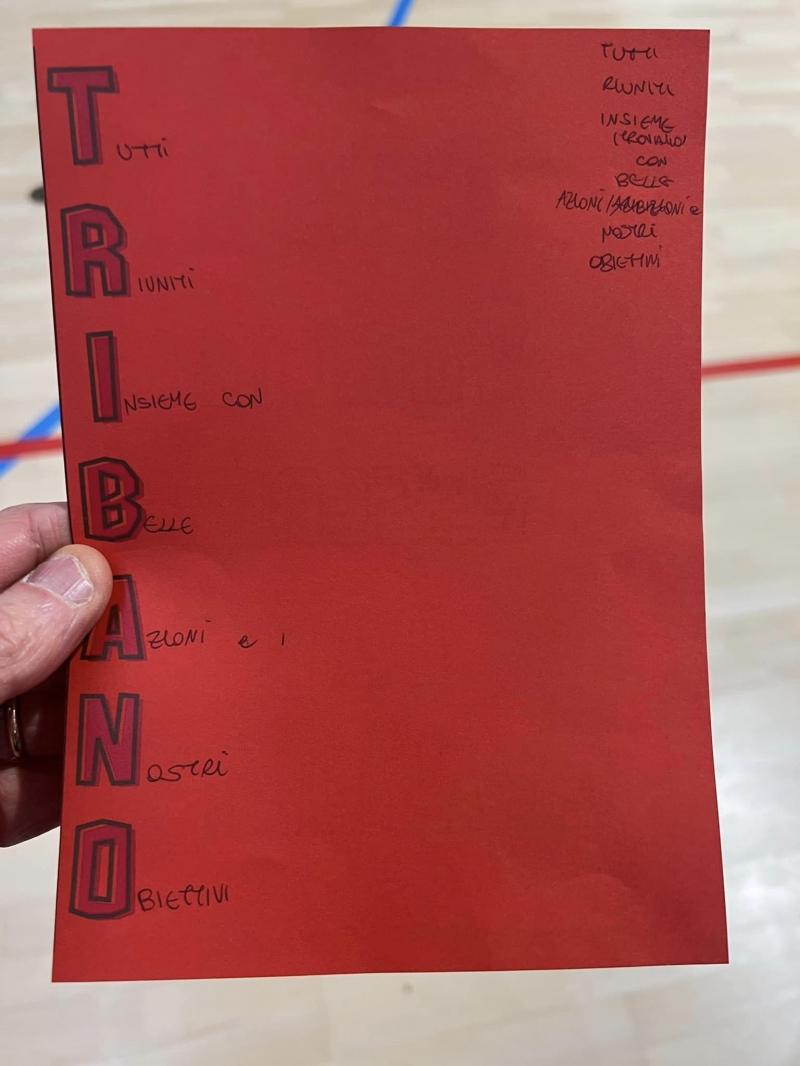 TUTTI
RIUNITI
INSIEME CON
BELLE
AZIONI e I
NOSTRI
OBIETTIVI
TUTTI
RIUNITI
INSIEME
CON
BELLE
AZIONI / e
NOSTRI
OBIETTIVI